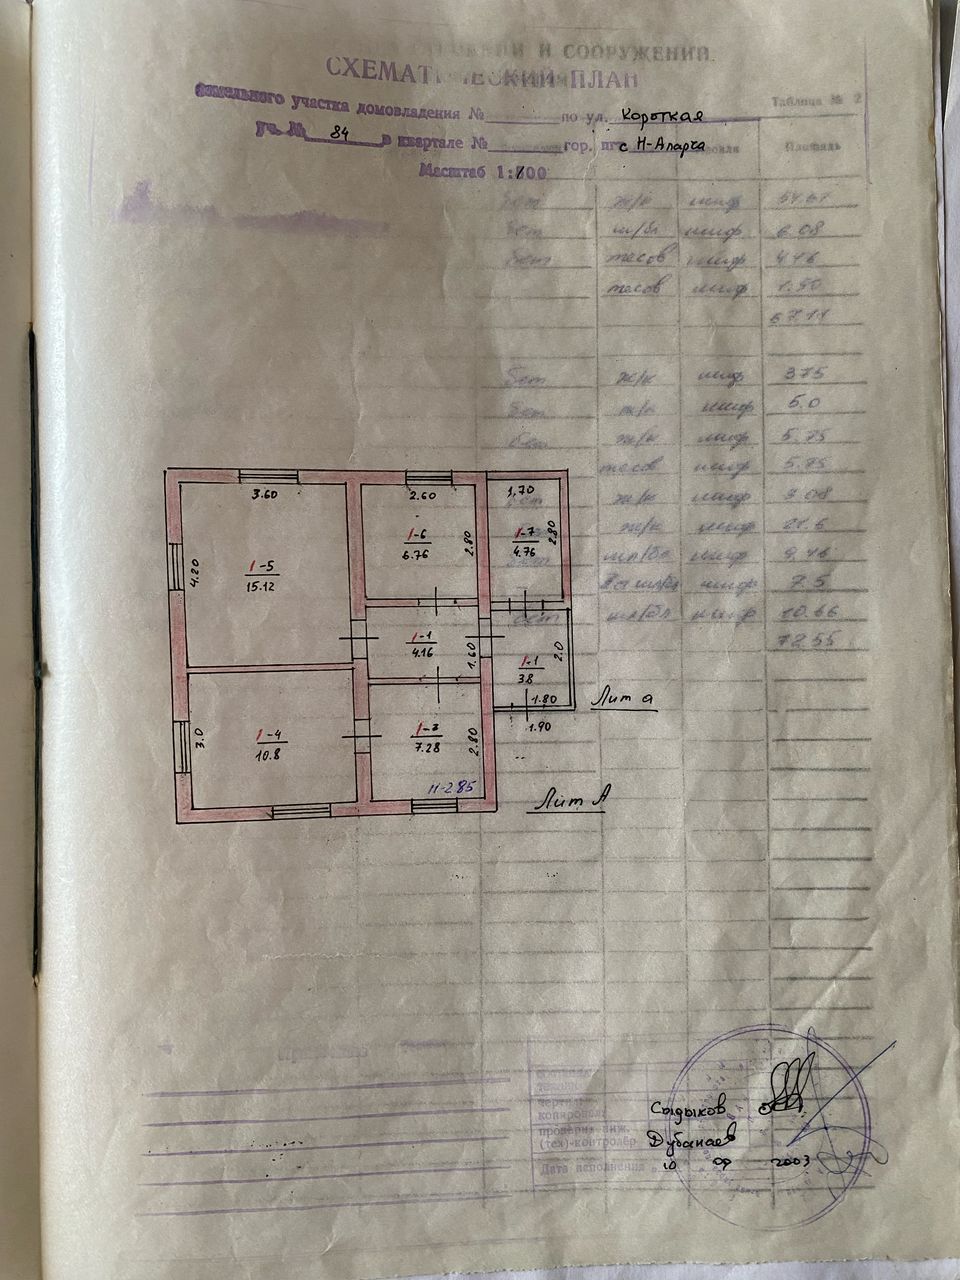 СХЕМАТИЧЕСКИЙ ПЛАН
земельного участка домовладения № по ул. Короткая
уч. № 84 в квартале № гор. пгт с Н-Аларча
Масштаб 1:100
Таблица № 2
Площадь
ж/к шиф 54.67
шл/бл шиф 6.08
бет тесов шиф 4.46
тесов шиф 1.50
67.11
бет ж/к шиф 3.75
бет ж/к шиф 5.0
бет ж/к шиф 5.75
тесов шиф 5.75
ж/к шиф 9.08
ж/к шиф 21.6
шл/бл шиф 9.46
шиф 7.5
бет шл/бл шиф 10.66
72.55
3.60
2.60
1.70
1-5
15.12
4.20
1-6
6.76
2.80
1-7
4.76
2.80
1-1
4.16
1.60
1-1
3.8
2.0
1.80
1.90
Лит а
1-4
10.8
3.0
1-3
7.28
2.80
H-2.85
Лит А
копировал
проверил инж.
(тех)-контролёр
Дата исполнения
Сыдыков
Дубанаев
10 09 2003